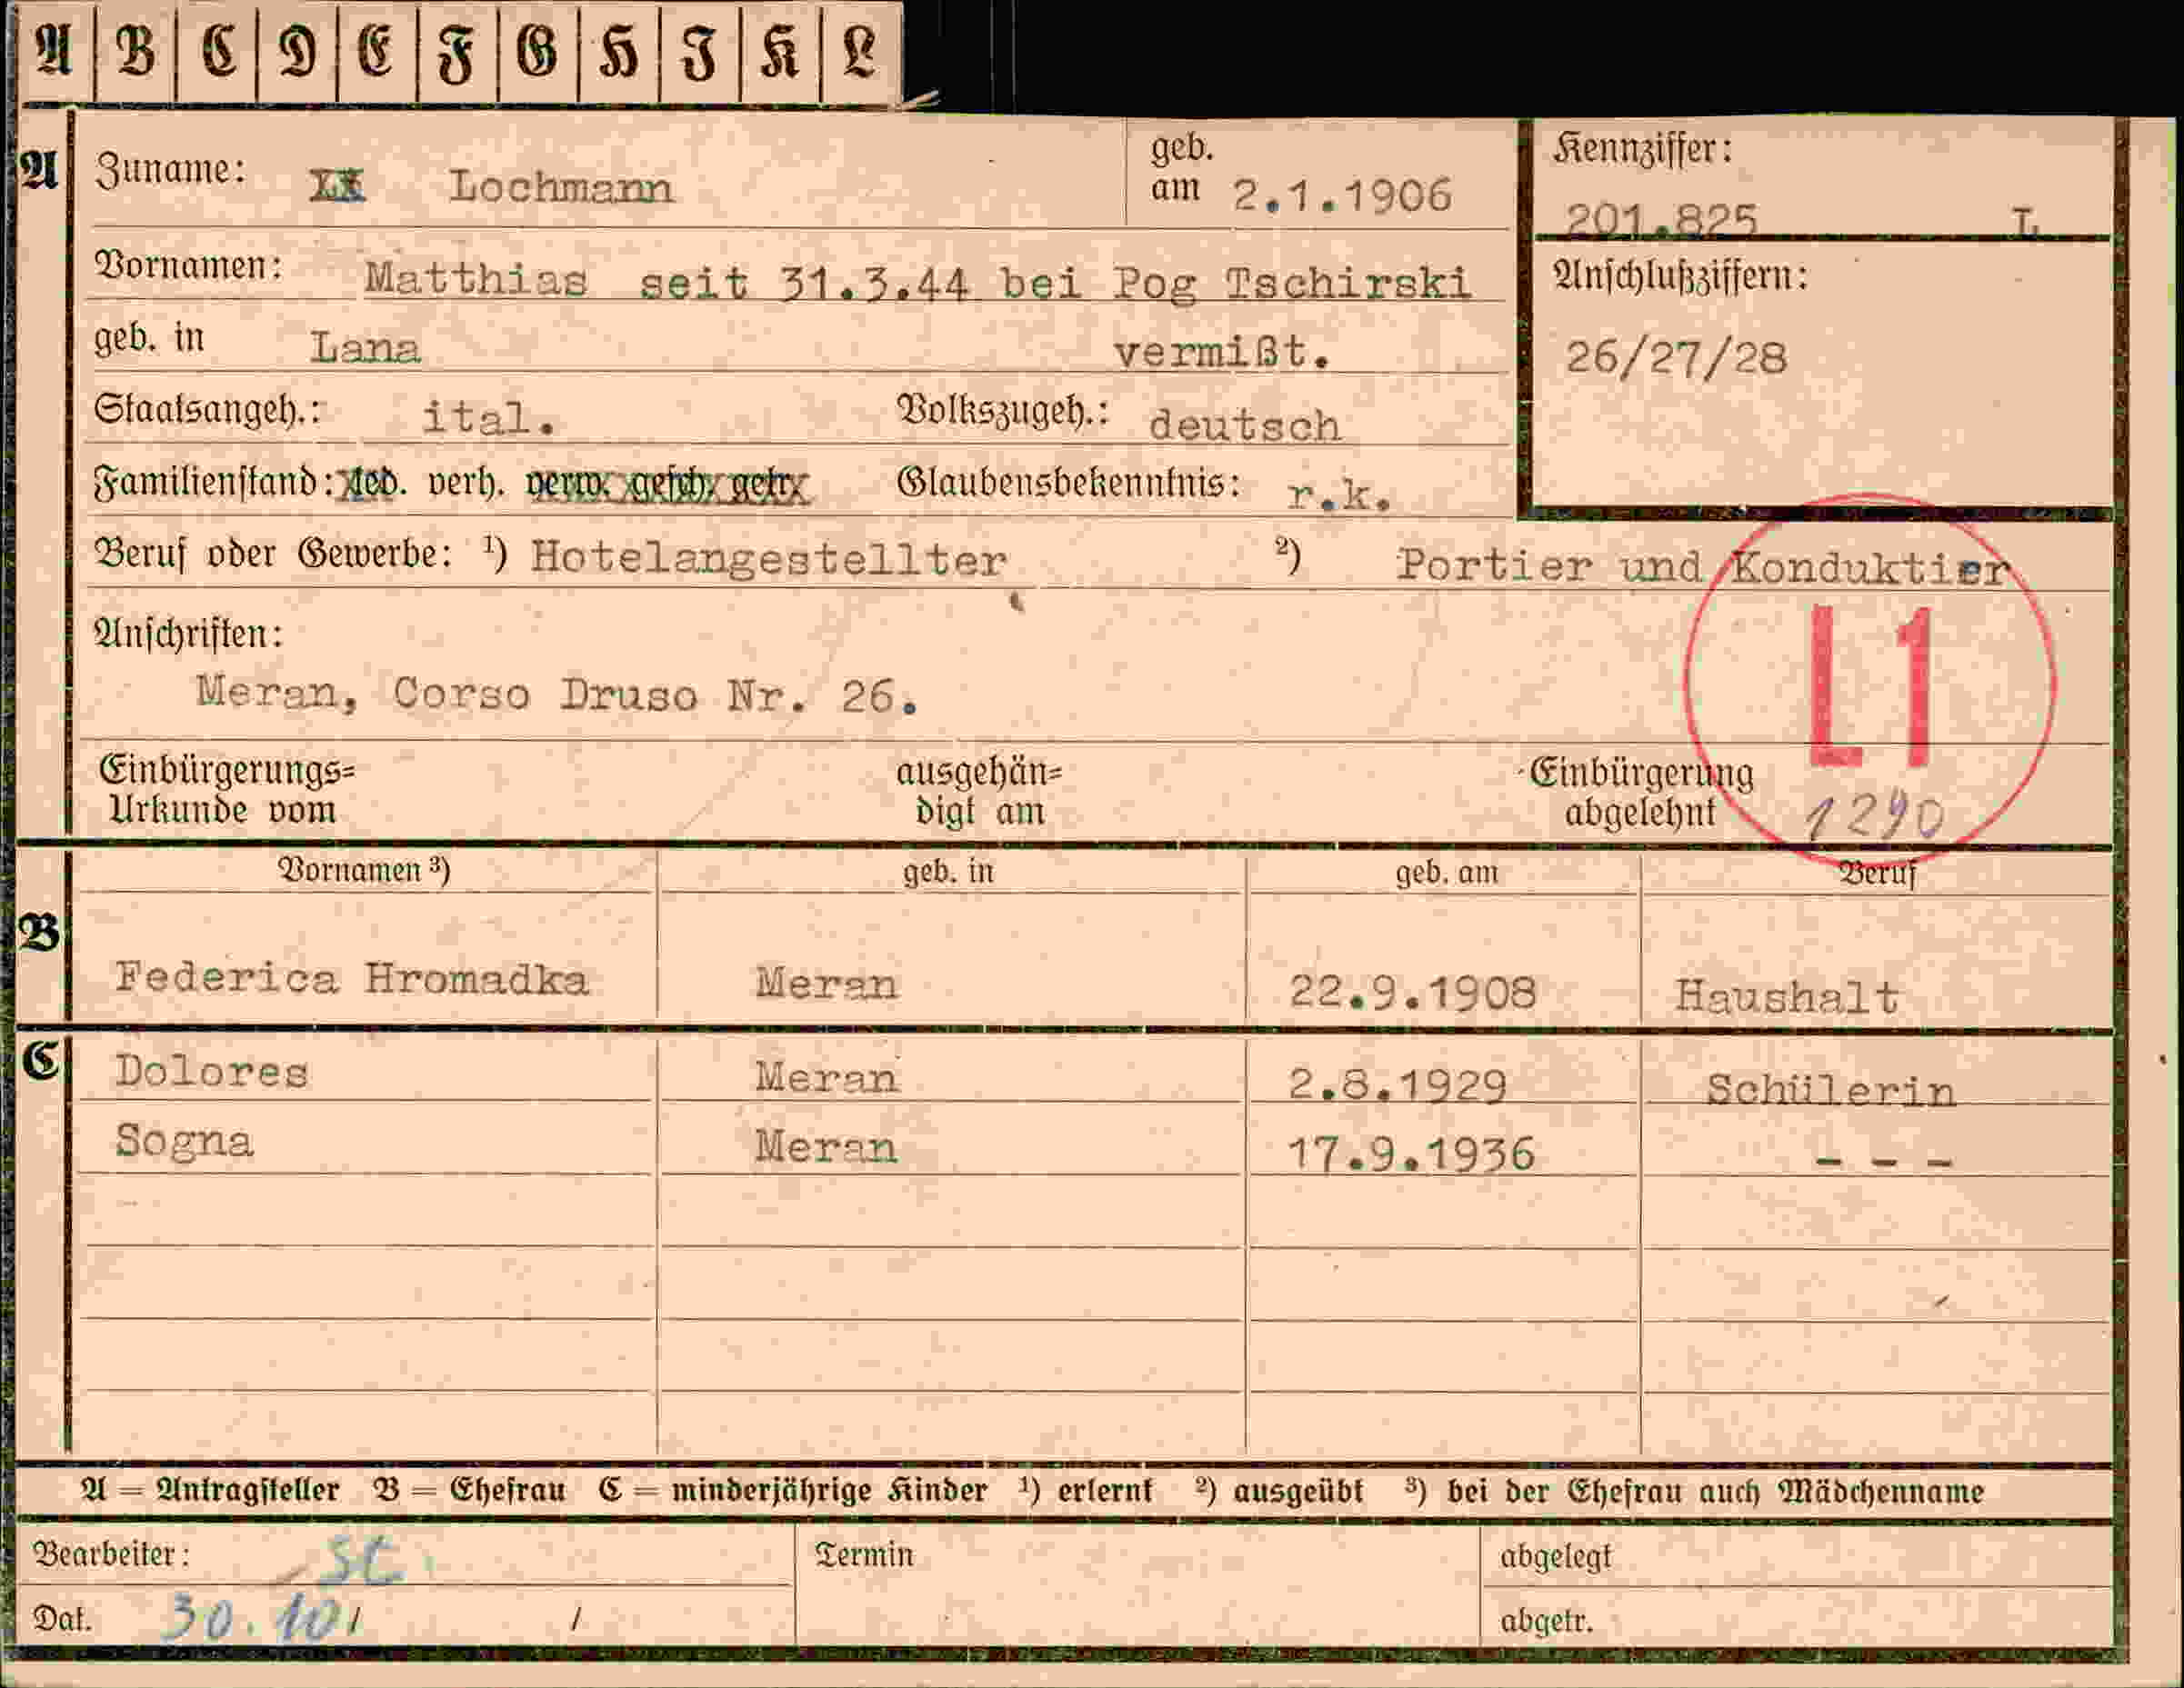 A B C D E F G H I K L
A Zuname: Lochmann geb. am 2.1.1906
Kennziffer:
201.825 L
Vornamen: Matthias seit 31.3.44 bei Pog Tschirski
Anschlußziffern:
geb. in Lana vermißt.
26/27/28
Staatsangeh.: ital. Volkszugeh.: deutsch
Familienstand: led. verh. verw. gesch. getr. Glaubensbekenntnis: r.k.
Beruf oder Gewerbe: ¹) Hotelangestellter ²) Portier und Konduktier
Anschriften:
L1
Meran, Corso Druso Nr. 26.
Einbürgerungs= ausgehän= Einbürgerung
Urkunde vom digt am abgelehnt 1290
Vornamen ³) geb. in geb. am Beruf
B
Federica Hromadka Meran 22.9.1908 Haushalt
C Dolores Meran 2.8.1929 Schülerin
Sogna Meran 17.9.1936 - - -
A = Antragsteller B = Ehefrau C = minderjährige Kinder ¹) erlernt ²) ausgeübt ³) bei der Ehefrau auch Mädchenname
Bearbeiter: SC Termin abgelegt
Dat. 30.10/ / abgetr.